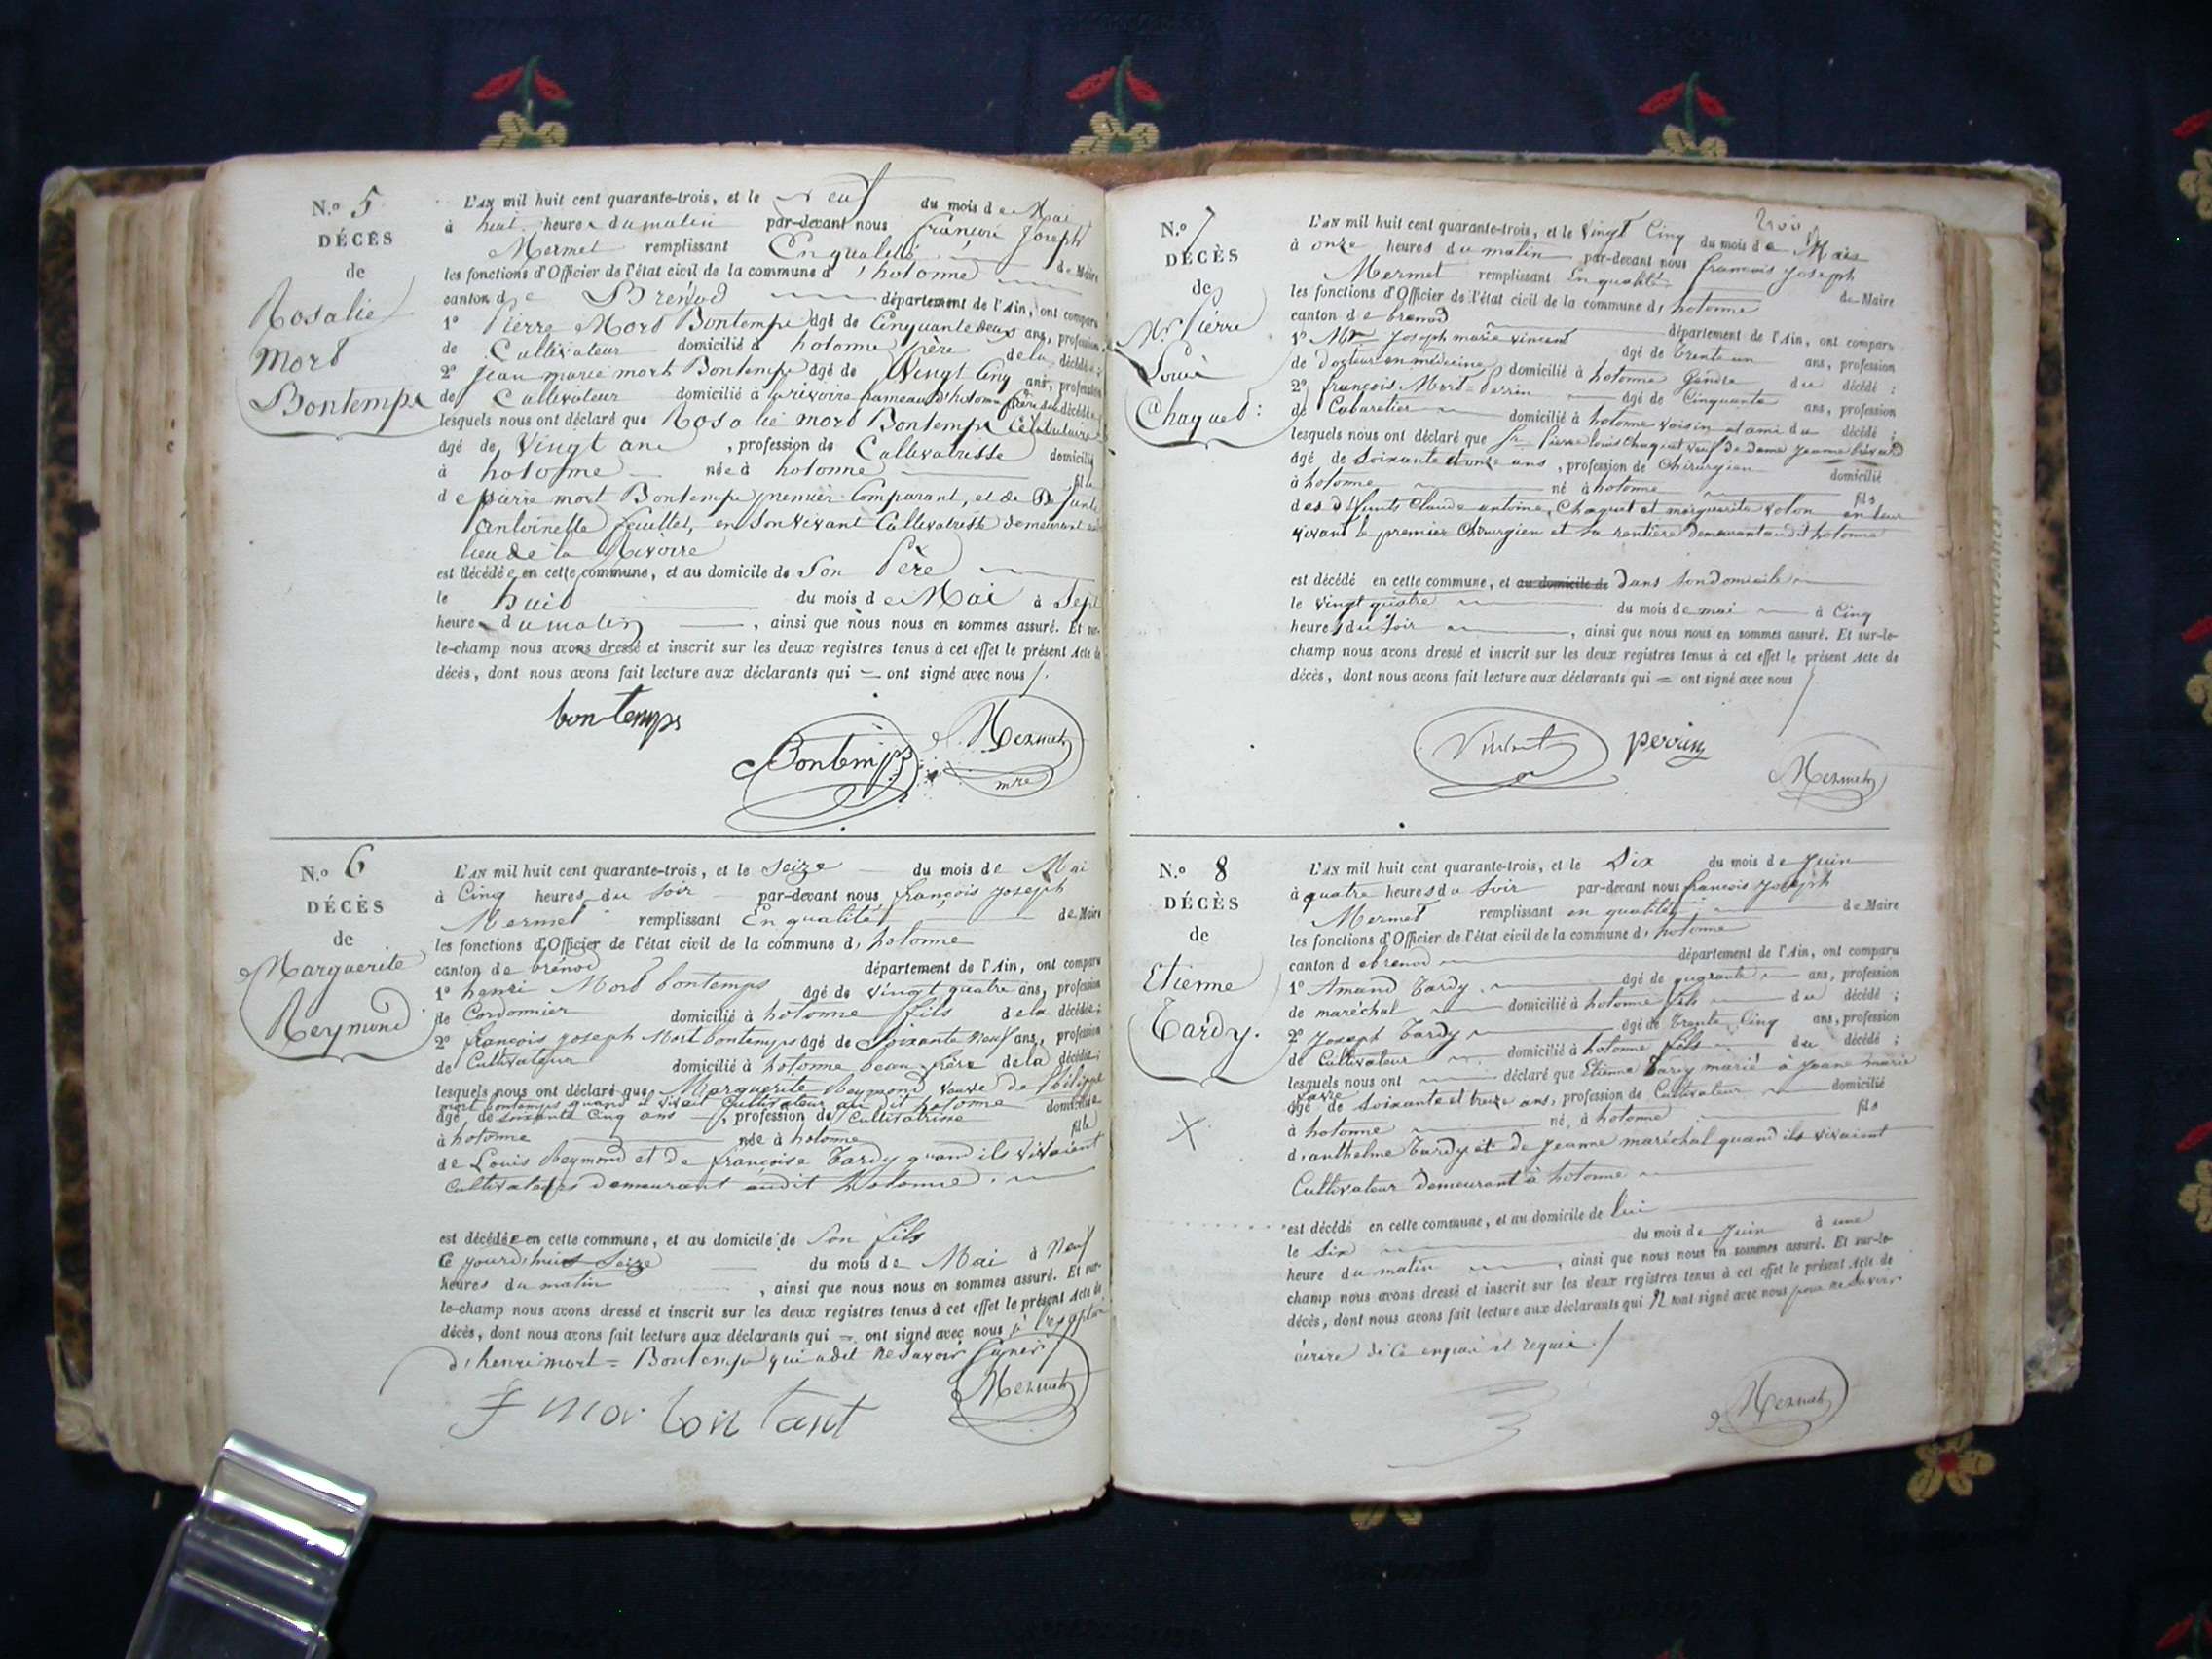 N.º 5
DÉCÈS
de
Rosalie
Mort
Bontemps
L'AN mil huit cent quarante-trois, et le neuf du mois de Mai
à huit heures du matin par-devant nous françois Joseph
Mermet remplissant En qualité de Maire
les fonctions d'Officier de l'état civil de la commune d'hotonne
canton de Brénod département de l'Ain, ont comparu
1º Pierre Mort Bontemps âgé de Cinquante deux ans, profession
de Cultivateur domicilié à hotonne père de la décédée ;
2º Jean marie mort Bontemps âgé de Vingt Cinq ans, profession
de Cultivateur domicilié à la rivoire hameau d'hotonne frère de la décédée
lesquels nous ont déclaré que Rosalie mort Bontemps Célibataire
âgé de Vingt ans , profession de Cultivatrisse domicilié
à hotonne née à hotonne fille
de pierre mort Bontemps premier Comparant, et de Defunte
Antoinette feuillet, en son vivant Cultivatrisse demeurant au
lieu de la Rivoire
est décédée en cette commune, et au domicile de Son Père
le huit du mois de Mai à Sept
heures du matin , ainsi que nous nous en sommes assuré. Et sur-
le-champ nous avons dressé et inscrit sur les deux registres tenus à cet effet le présent Acte de
décès, dont nous avons fait lecture aux déclarants qui = ont signé avec nous /.
bontemps
Bontemps
Mermet
mre
N.º 6
DÉCÈS
de
Marguerite
Reymond
L'AN mil huit cent quarante-trois, et le Seize du mois de Mai
à Cinq heures du Soir par-devant nous françois Joseph
Mermet remplissant En qualité de Maire
les fonctions d'Officier de l'état civil de la commune d'hotonne
canton de brénod département de l'Ain, ont comparu
1º henri Mort bontemps âgé de vingt quatre ans, profession
de Cordonnier domicilié à hotonne fils de la décédée ;
2º françois Joseph Mort bontemps âgé de Soixante Neuf ans, profession
de Cultivateur domicilié à hotonne beau frère de la décédée ;
lesquels nous ont déclaré que Marguerite Reymond veuve de Philippe
mort bontemps quand il vivait Cultivateur au dit hotonne
âgé de soixante Cinq ans , profession de Cultivatrisse domiciliée
à hotonne née à hotonne fille
de Louis Reymond et de françoise Tardy quand ils vivaient
Cultivateurs demeurant audit hotonne.
est décédée en cette commune, et au domicile de Son fils
Ce jourd'hui Seize du mois de Mai à Neuf
heures du matin , ainsi que nous nous en sommes assuré. Et sur-
le-champ nous avons dressé et inscrit sur les deux registres tenus à cet effet le présent Acte de
décès, dont nous avons fait lecture aux déclarants qui = ont signé avec nous
d'henri mort = Bontemps qui a dit ne Savoir Signer
f mor bon tant
Mermet
N.º 7
DÉCÈS
de
Mr Pierre
Louis
Chaquet
L'AN mil huit cent quarante-trois, et le Vingt Cinq du mois de Mai
à onze heures du matin par-devant nous françois Joseph
Mermet remplissant En qualité de Maire
les fonctions d'Officier de l'état civil de la commune d'hotonne
canton de brenod département de l'Ain, ont comparu
1º Mr Joseph marie vincent âgé de trente un ans, profession
de docteur en médecine domicilié à hotonne Gendre du décédé ;
2º françois Mort = Perrin âgé de Cinquante ans, profession
de Cabaretier domicilié à hotonne voisin et ami du décédé ;
lesquels nous ont déclaré que Sr Pierre louis Chaquet veuf de dame Jeanne
âgé de Soixante et onze ans , profession de Chirurgien domicilié
à hotonne né à hotonne fils
des défunts Claude antoine Chaquet et marguerite volon en leur
vivant le premier Chirurgien et la rentière demeurant audit hotonne
est décédé en cette commune, et au domicile de Dans Son domicile
le vingt quatre du mois de mai à Cinq
heures du Soir , ainsi que nous nous en sommes assuré. Et sur-le-
champ nous avons dressé et inscrit sur les deux registres tenus à cet effet le présent Acte de
décès, dont nous avons fait lecture aux déclarants qui = ont signé avec nous /
Vincent
perrin
Mermet
N.º 8
DÉCÈS
de
Etienne
Tardy.
X
L'AN mil huit cent quarante-trois, et le Six du mois de Juin
à quatre heures du Soir par-devant nous françois Joseph
Mermet remplissant en qualité de Maire
les fonctions d'Officier de l'état civil de la commune d'hotonne
canton de brenod département de l'Ain, ont comparu
1º Amand Tardy âgé de quarante ans, profession
de maréchal domicilié à hotonne fils du décédé ;
2º Joseph Tardy âgé de Trente Cinq ans, profession
de Cultivateur domicilié à hotonne fils du décédé ;
lesquels nous ont déclaré que Etienne Tardy marié à Jeane marie
âgé de Soixante et treize ans, profession de Cultivateur domicilié
à hotonne né à hotonne fils
d'anthelme Tardy et de Jeanne maréchal quand ils vivaient
Cultivateur demeurant à hotonne
est décédé en cette commune, et au domicile de lui
le Six du mois de Juin à une
heure du matin , ainsi que nous nous en sommes assuré. Et sur-le-
champ nous avons dressé et inscrit sur les deux registres tenus à cet effet le présent Acte de
décès, dont nous avons fait lecture aux déclarants qui N'ont signé avec nous pour ne Savoir
écrire de Ce enquis et requis. /
Mermet